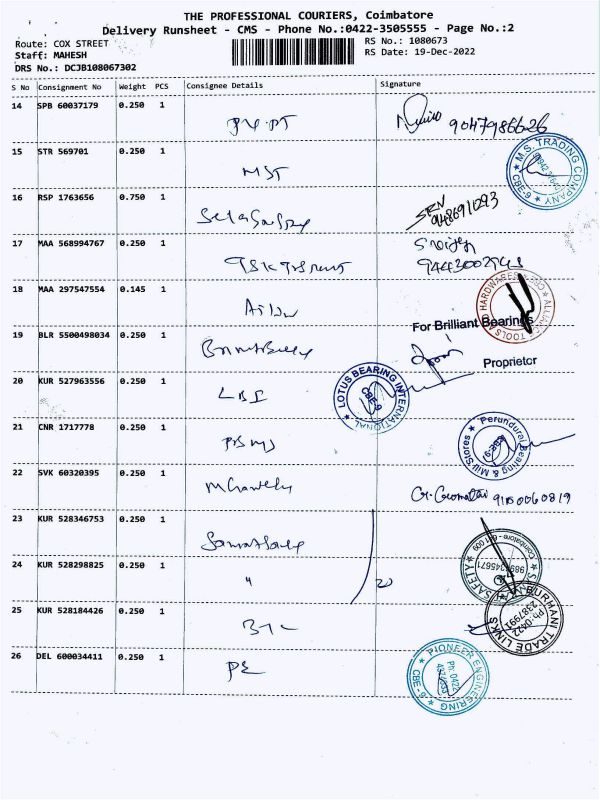 THE PROFESSIONAL COURIERS, Coimbatore
Delivery Runsheet - CMS - Phone No.:0422-3505555 - Page No.:2
Route: COX STREET
RS No.: 1080673
Staff: MAHESH
RS Date: 19-Dec-2022
DRS No.: DCJB108067302
S No Consignment No Weight PCS Consignee Details Signature
14 SPB 60037179 0.250 1
9047986626
15 STR 569701 0.250 1
MST
M.S. TRADING COMPANY
CBE-9
16 RSP 1763656 0.750 1
17 MAA 568994767 0.250 1
18 MAA 297547554 0.145 1
ALLIANCE TOOLS AND HARDWARES
For Brilliant Bearings
19 BLR 5500498034 0.250 1
Proprietor
20 KUR 527963556 0.250 1
LBI
LOTUS BEARING INTERNATIONAL
CBE-9
21 CNR 1717778 0.250 1
Perundurai Bearing & Mill Stores
CBE-9
22 SVK 60320395 0.250 1
9150060819
23 KUR 528346753 0.250 1
24 KUR 528298825 0.250 1
"
20
SAFETY
25 KUR 528184426 0.250 1
BTL
BURMANI TRADE LINKS
Ph:0422
2387991
26 DEL 600034411 0.250 1
PE
PIONEER ENGINEERING
Ph: 0422
CBE - 9